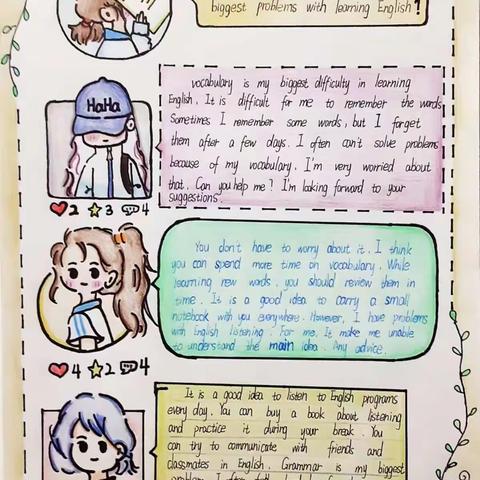 biggest problems with learning English?
HaHa
vocabulary is my biggest difficulty in learning
English. It is difficult for me to remember the words
Sometimes I remember some words, but I forget
them after a few days. I often can't solve problems
because of my vocabulary. I'm very worried about
that. Can you help me? I'm looking forward to your
suggestions.
2 3 4
You don't have to worry about it. I think
you can spend more time on vocabulary. While
learning new words, you should review them in
time. It is a good idea to carry a small
notebook with you everywhere. However, I have problems
with English listening. For me. It make me unable
to understand the main idea. Any advice.
4 2 4
It is a good idea to listen to English programs
every day. You can buy a book about listening
and practice it during your break. You
can try to communicate with friends and
classmates in English. Grammar is my biggest